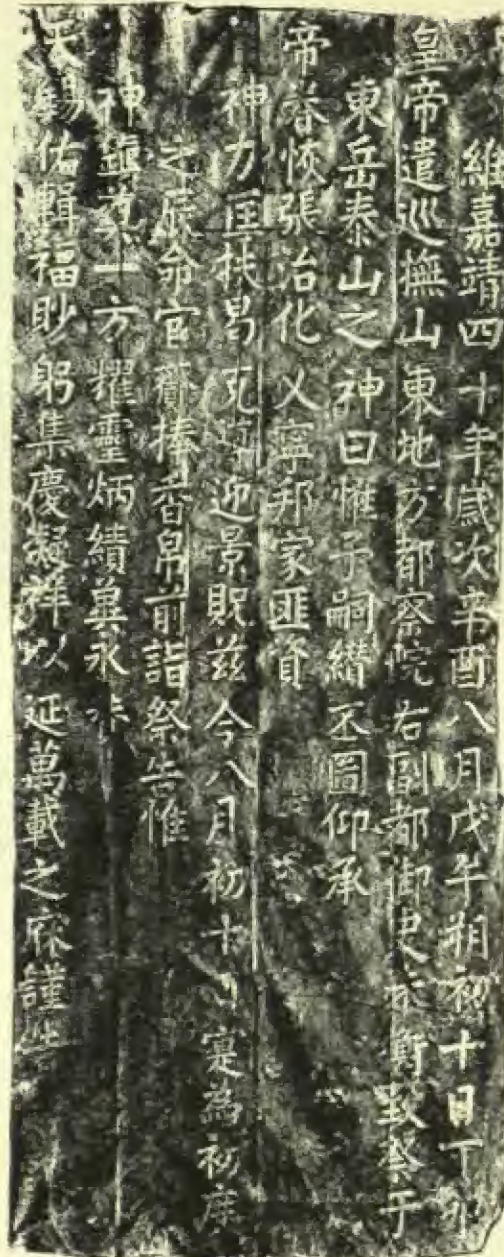 維嘉靖四十年歲次辛酉八月戊午朔初十日丁卯
皇帝遣巡撫山東地方都察院右副都御史朱衡致祭于
東岳泰山之神曰惟予嗣纘丕圖仰承
帝眷恢張治化乂寧邦家匪資
神力匡扶曷克迎景貺茲今八月初十日寔為初度
之辰命官齎捧香帛前詣祭告惟
神鎮奠一方耀靈炳績冀永
天錫佑輯福眇躬集慶凝祥以延萬載之庥謹告